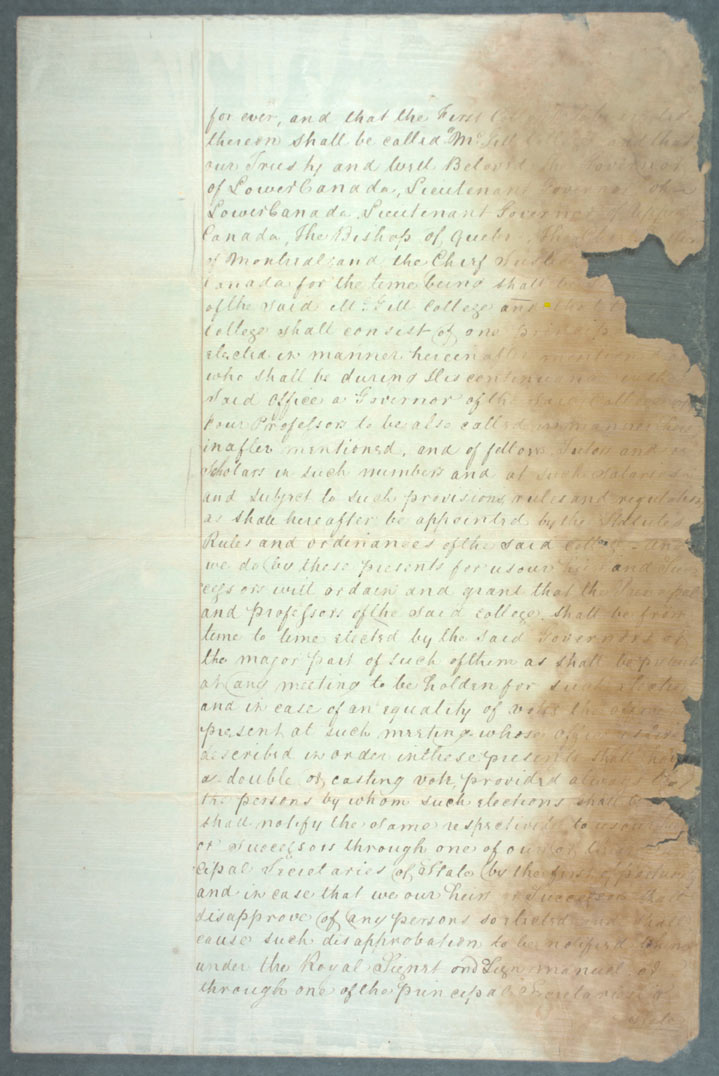 for ever, and that the First
thereon shall be called Mc Gill and that
our Trusty and Well Beloved the Governor
of Lower Canada, Lieutenant Governor of
Lower Canada Lieutenant Governor of Upper
Canada, The Bishop of Quebec, The Chief
of Montreal and the Chief Justice
Canada for the time being shall be
of the said Mc Gill College and
College shall consist of one princip
elected in manner hereinafter mentioned
who shall be during His continuance in the
said office a Governor of the said College of
four Professors to be also called in manner here
inafter mentioned, and of fellows Tutors and
Scholars in such numbers and at such salaries
and subject to such provisions rules and regulations
as shall hereafter be appointed by the Statutes
Rules and ordinances of the said college and
we do by these presents for us our heirs and Suc
cessors will ordain and grant that the Principal
and professors of the said college shall be from
time to time elected by the said Governors or
the major part of such of them as shall be present
at any meeting to be holden for such election
and in case of an equality of votes the
present at such meeting whose office
described in order in these presents shall have
a double or casting vote, provided always that
the persons by whom such elections shall be
shall notify the same respectively to us our
or Successors through one of our or
cipal Secretaries of State by the first opportunity
and in case that we our heirs or Successors shall
disapprove of any persons so elected and shall
cause such disapprobation to be notified
under the Royal Signet and Sign manual or
through one of the principal Secretaries of
State